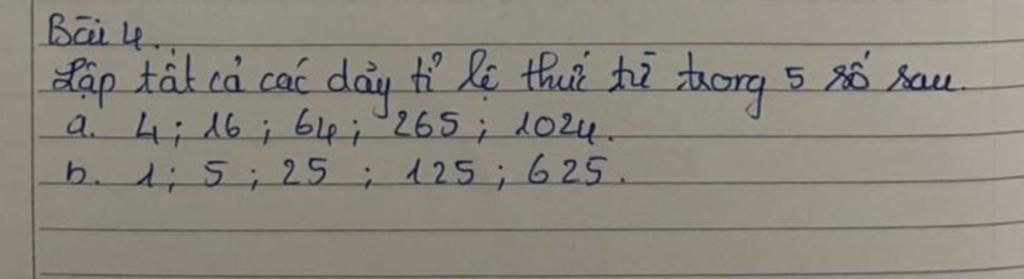 Bài 4.
Lập tất cả các dãy tỉ lệ thức từ trong 5 số sau.
a. 4 ; 16 ; 64 ; 265 ; 1024.
b. 1 ; 5 ; 25 ; 125 ; 625.